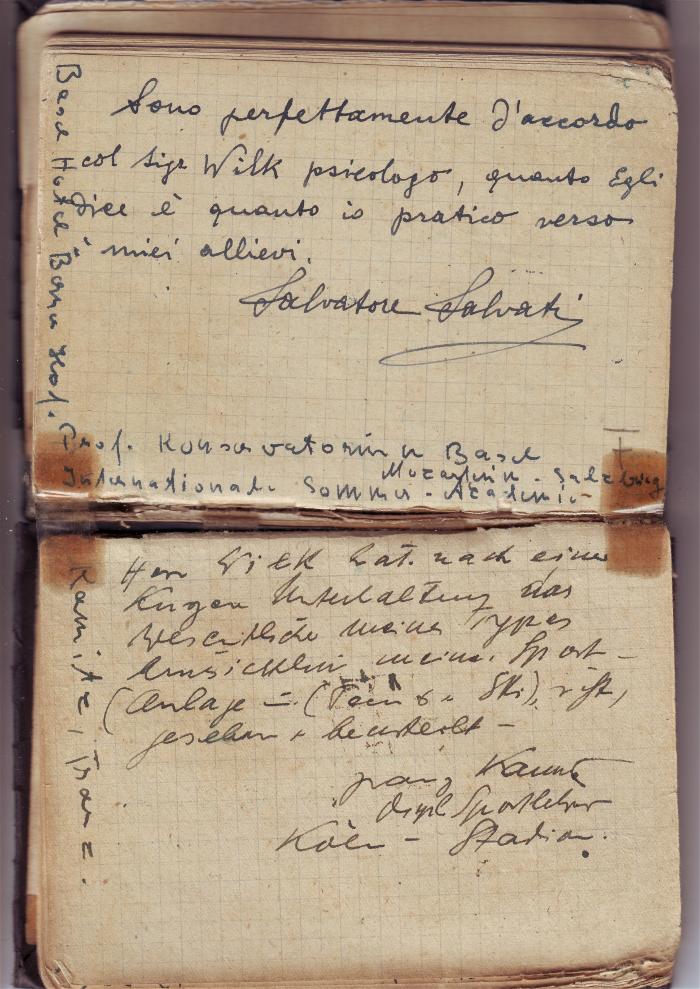 Sono perfettamente d'accordo
col Sigr Wilk psicologo, quanto Egli
dice è quanto io pratico verso
i miei allievi.
Salvatore Salvati
Prof. Konservatorium Basel
Mozarteum - Salzburg
Internationale Sommer-Academie
Basel Hotel
Herr Wilk hat nach einer
kurzen Unterhaltung das
wesentliche meines Types
meine Sport-
(Anlage (Tennis u Ski),
gesehen u beurteilt -
Franz
dipl Sportlehrer
Köln - Stadion.
Kamitz, Franz.